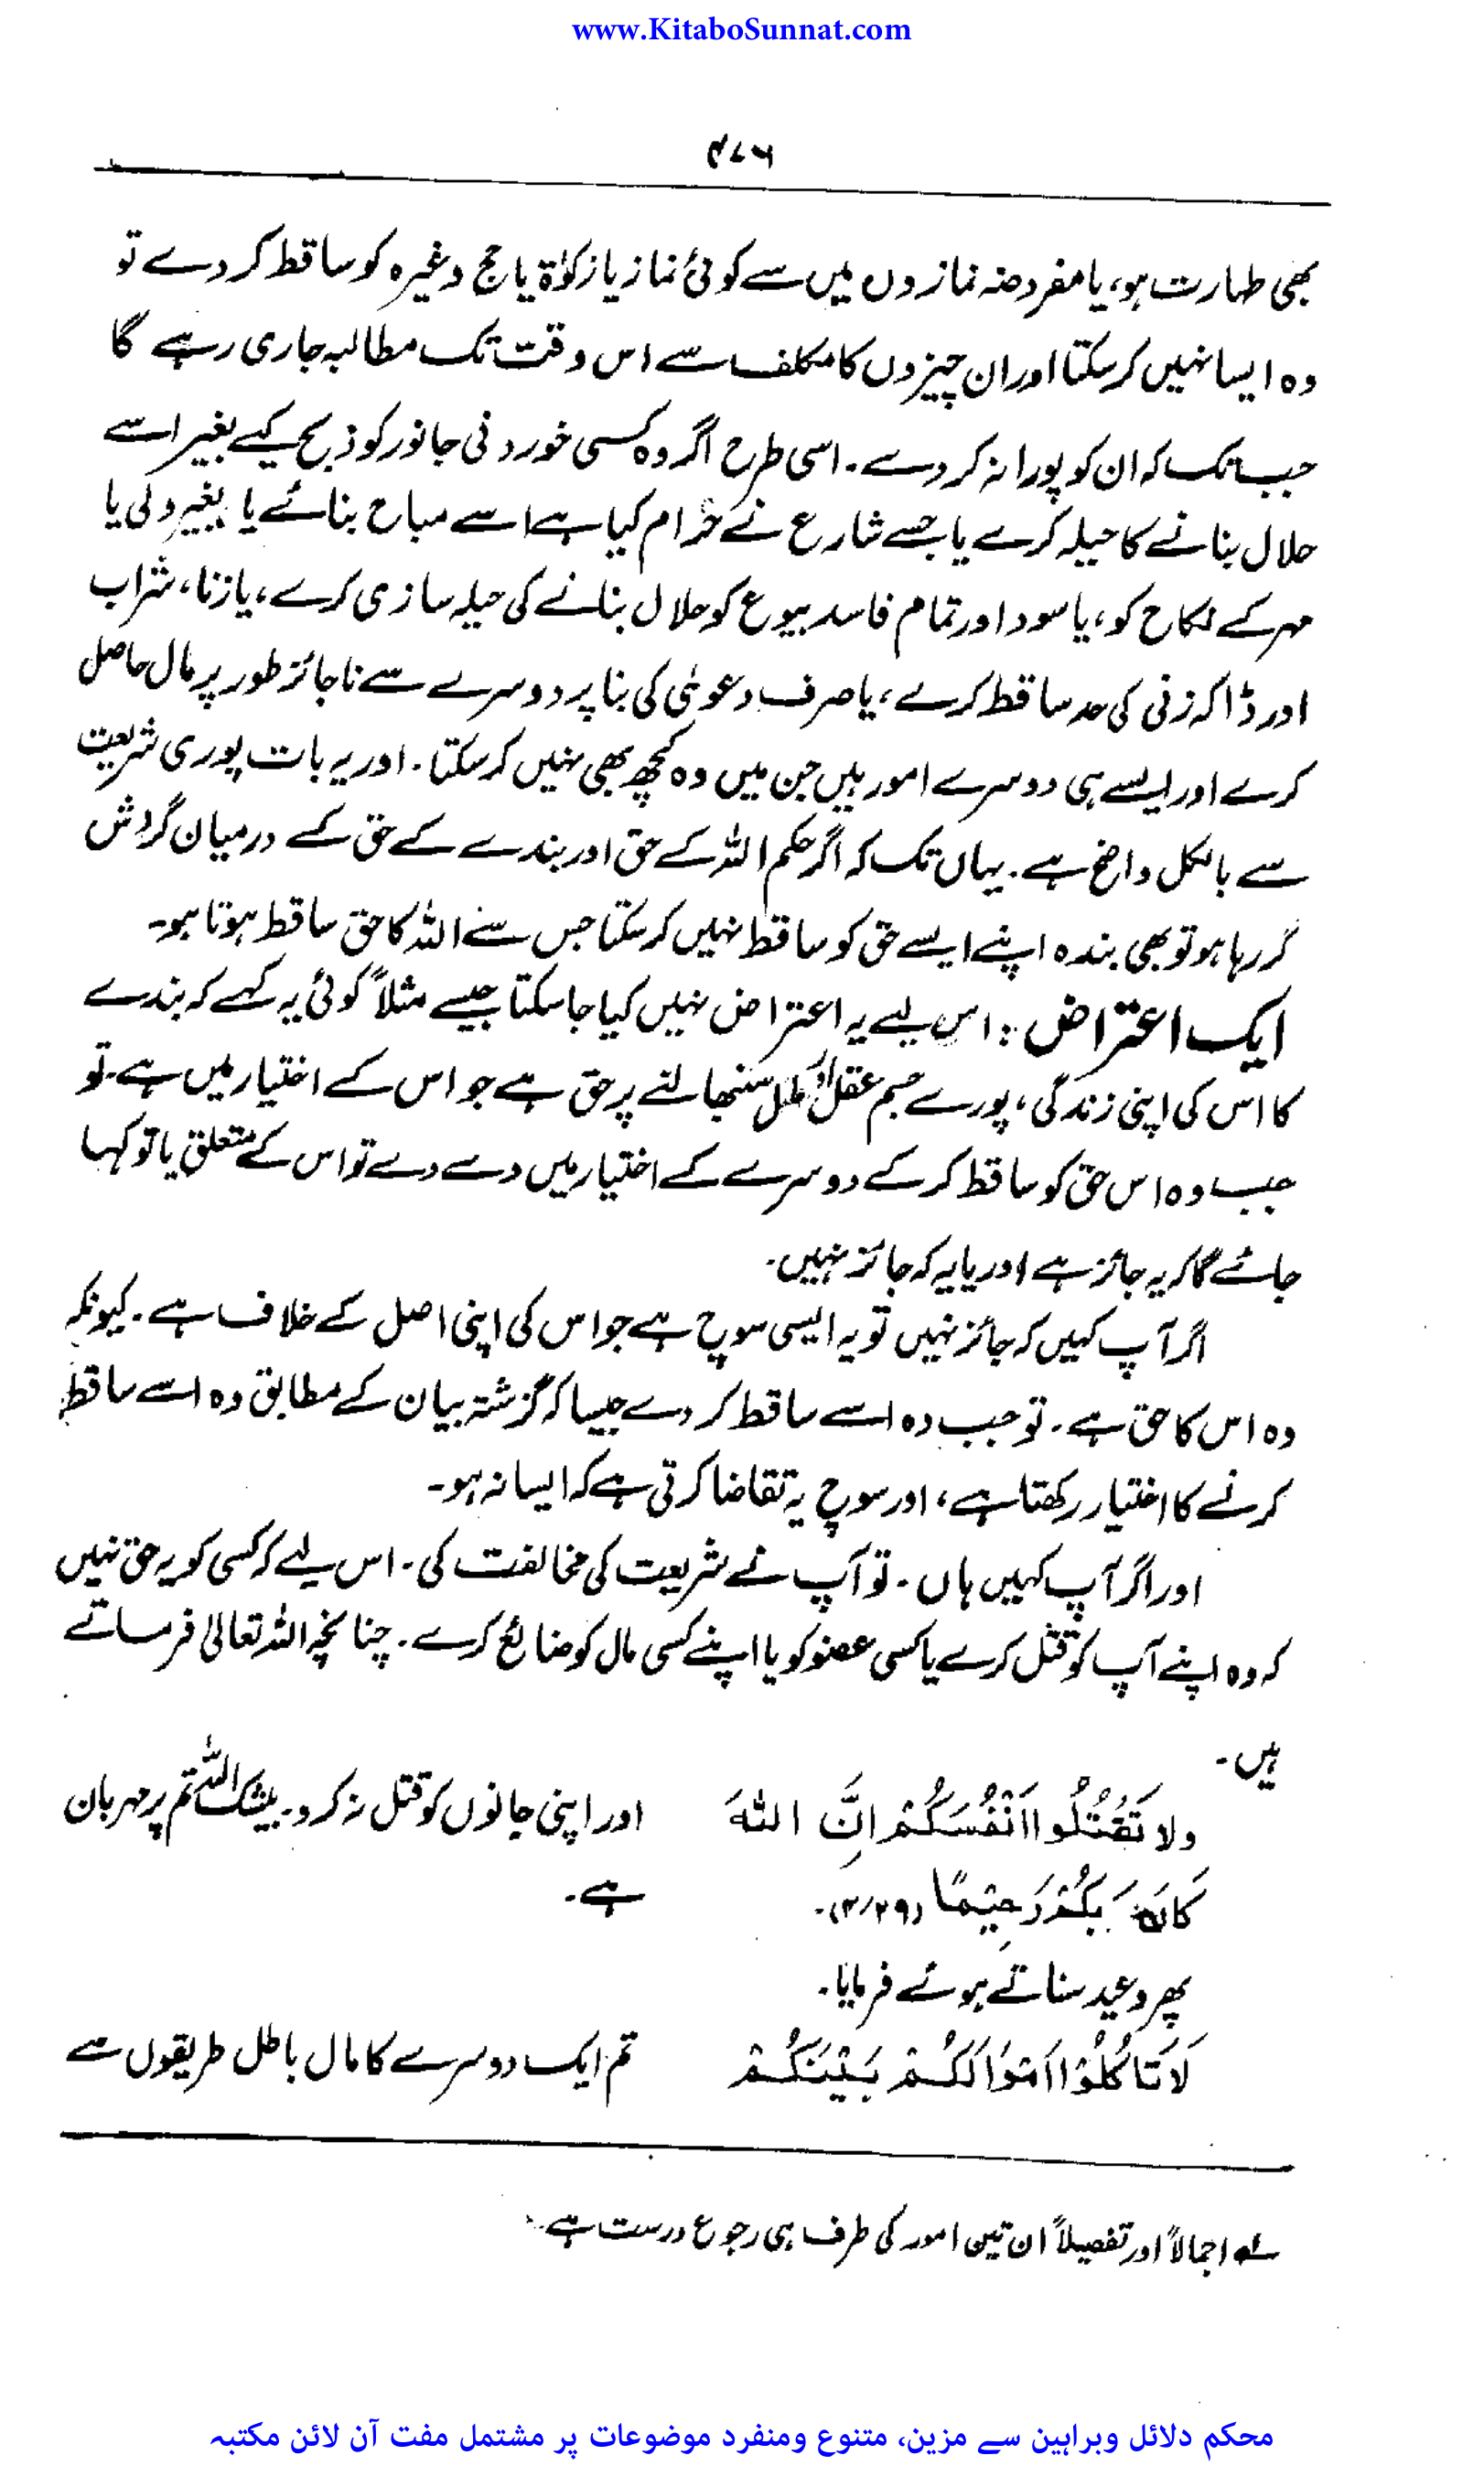 www.KitaboSunnat.com
۴۷۶
بھی طہارت ہو، یا مفروضہ نمازوں میں سے کوئی نماز یا زکوٰۃ یا حج وغیرہ کو ساقط کر دے تو
وہ ایسا نہیں کر سکتا اور ان چیزوں کا مکلف سے اس وقت تک مطالبہ جاری رہے گا
جب تک کہ ان کو پورا نہ کر دے۔ اسی طرح اگر وہ کسی خوردنی جانور کو ذبح کیے بغیر اسے
حلال بنانے کا حیلہ کرے یا جسے شارع نے حرام کیا ہے اسے مباح بنائے یا بغیر ولی یا
مہر کے نکاح کو، یا سود اور تمام فاسد بیوع کو حلال بنانے کی حیلہ سازی کرے، یا زنا، شراب
اور ڈاکہ زنی کی حد ساقط کرے، یا صرف دعویٰ کی بنا پر دوسرے سے ناجائز طور پر مال حاصل
کرے اور ایسے ہی دوسرے امور ہیں جن میں وہ کچھ بھی نہیں کر سکتا۔ اور یہ بات پوری شریعت
سے بالکل واضح ہے۔ یہاں تک کہ اگر حکم اللہ کے حق اور بندے کے حق کے درمیان گردش
کر رہا ہو تو بھی بندہ اپنے ایسے حق کو ساقط نہیں کر سکتا جس سے اللہ کا حق ساقط ہوتا ہو۔
ایک اعتراض : اس لیے یہ اعتراض نہیں کیا جا سکتا جیسے مثلاً کوئی یہ کہے کہ بندے
کا اس کی اپنی زندگی، پورے جسم عقل اور مال سنبھالنے پر حق ہے جو اس کے اختیار میں ہے۔ تو
جب وہ اس حق کو ساقط کر کے دوسرے کے اختیار میں دے دے تو اس کے متعلق یا تو کہا
جائے گا کہ یہ جائز ہے اور یا یہ کہ جائز نہیں۔
اگر آپ کہیں کہ جائز نہیں تو یہ ایسی سوچ ہے جو اس کی اپنی اصل کے خلاف ہے۔ کیونکہ
وہ اس کا حق ہے۔ تو جب وہ اسے ساقط کر دے جیسا کہ گزشتہ بیان کے مطابق وہ اسے ساقط
کرنے کا اختیار رکھتا ہے، اور سوچ یہ تقاضا کرتی ہے کہ ایسا نہ ہو۔
اور اگر آپ کہیں ہاں۔ تو آپ نے شریعت کی مخالفت کی۔ اس لیے کہ کسی کو یہ حق نہیں
کہ وہ اپنے آپ کو قتل کرے یا کسی عضو کو یا اپنے کسی مال کو ضائع کرے۔ چنانچہ اللہ تعالیٰ فرماتے
ہیں۔
ولا تَقْتُلُوا اَنْفُسَكُمْ اِنَّ اللّٰهَ اور اپنی جانوں کو قتل نہ کرو۔ بیشک اللہ تم پر مہربان
كَانَ بِكُمْ رَحِيْمًا (۴/۲۹)۔ ہے۔
پھر وعید سناتے ہوئے فرمایا۔
لَا تَاْكُلُوْا اَمْوَالَكُمْ بَيْنَكُمْ تم ایک دوسرے کا مال باطل طریقوں سے
لہ اجمالاً اور تفصیلاً ان تین امور کی طرف ہی رجوع درست ہے۔
محکم دلائل وبراہین سے مزین، متنوع ومنفرد موضوعات پر مشتمل مفت آن لائن مکتبہ